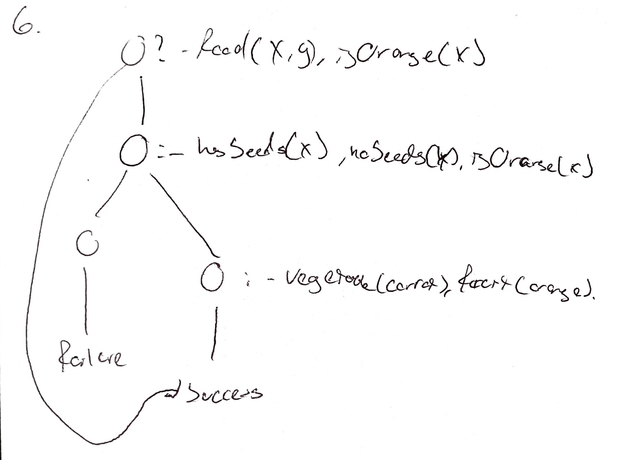 6.
?- food(X,y), isOrange(X)
:- hasSeeds(x), noSeeds(X), isOrange(x)
:- vegetable(carrot), fruit(orange).
failure
success